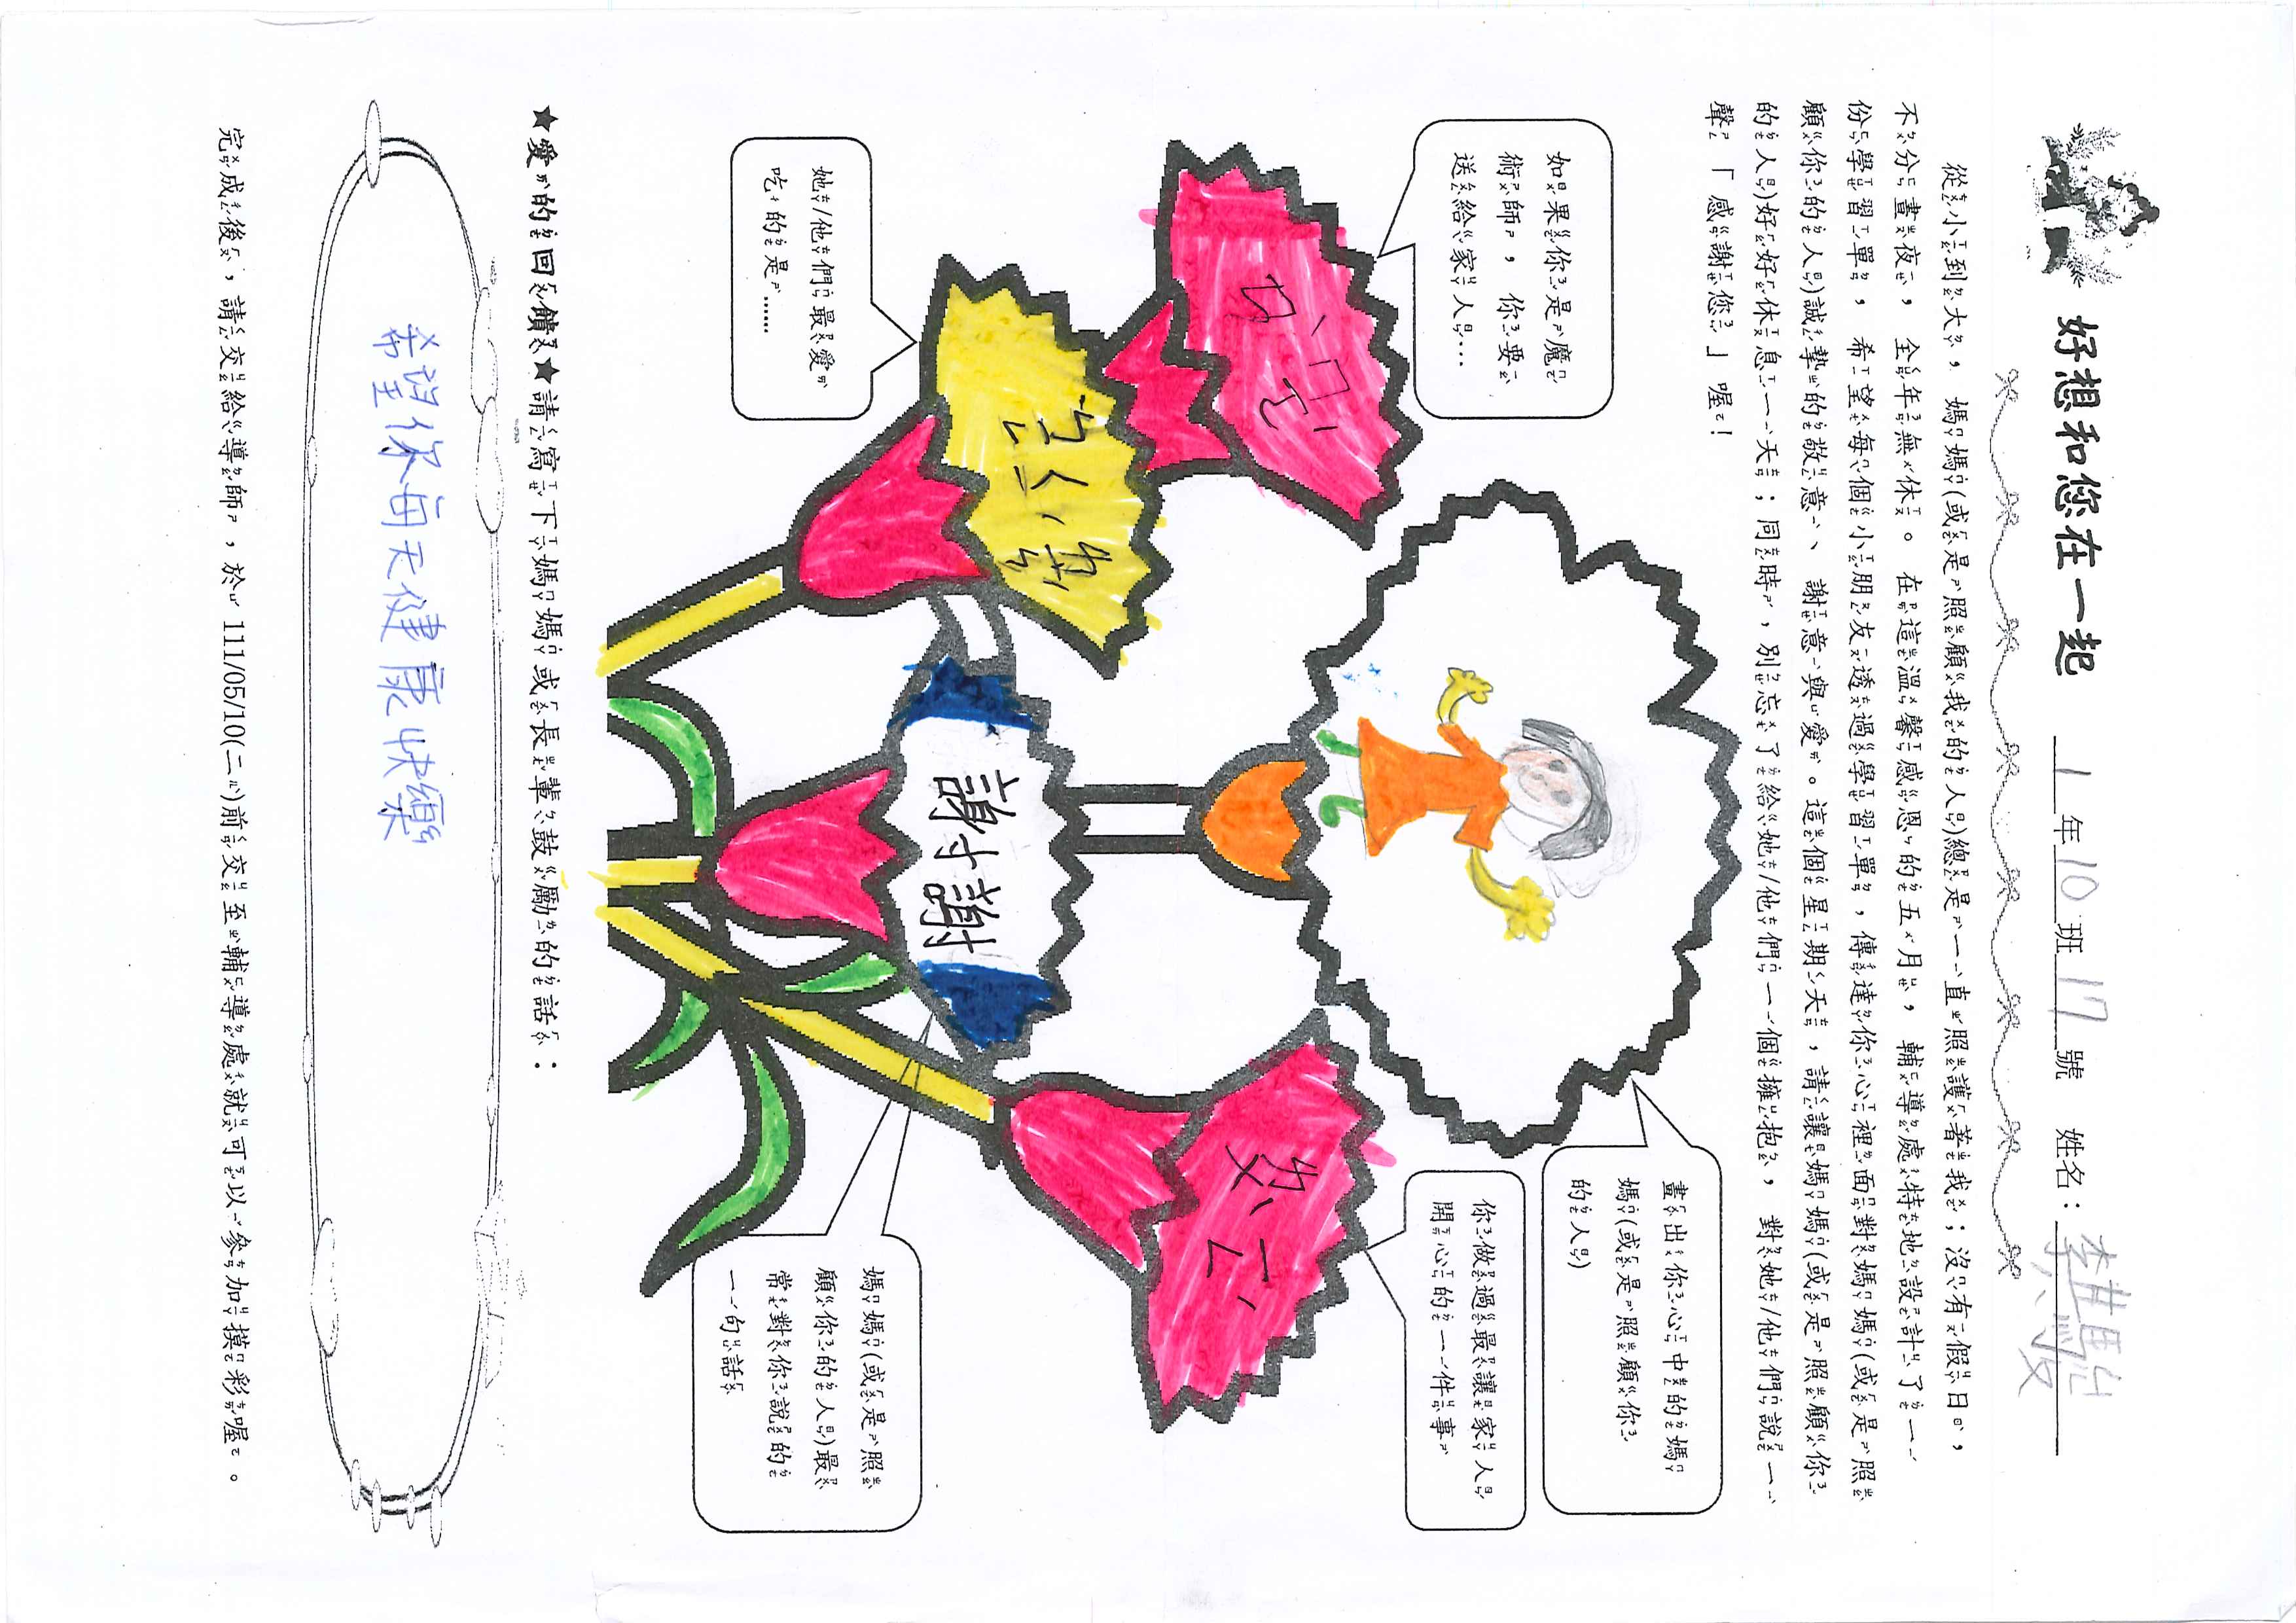 好想和您在一起 1年10班17號 姓名：李
從小到大，媽媽(或是照顧我的人)總是一直照護著我；沒有假日，
不分晝夜，全年無休。在這溫馨感恩的五月，輔導處特地設計了一
份學習單，希望每個小朋友透過學習單，傳達你心裡面對媽媽(或是照
顧你的人)誠摯的敬意、謝意與愛。這個星期天，請讓媽媽(或是照顧你
的人)好好休息一天；同時，別忘了給她/他們一個擁抱，對她/他們說一
聲「感謝您」喔！
畫出你心中的媽
媽(或是照顧你
的人)
如果你是魔
術師，你要
送給家人...
你做過最讓家人
開心的一件事
ㄉㄢˋ ㄍㄠ
她/他們最愛
吃的是……
謝謝
媽媽(或是照
顧你的人)最
常對你說的
一句話
★愛的回饋★請寫下媽媽或長輩鼓勵的話：
希望你每天健康快樂
完成後，請交給導師，於 111/05/10(二)前交至輔導處就可以參加摸彩喔。